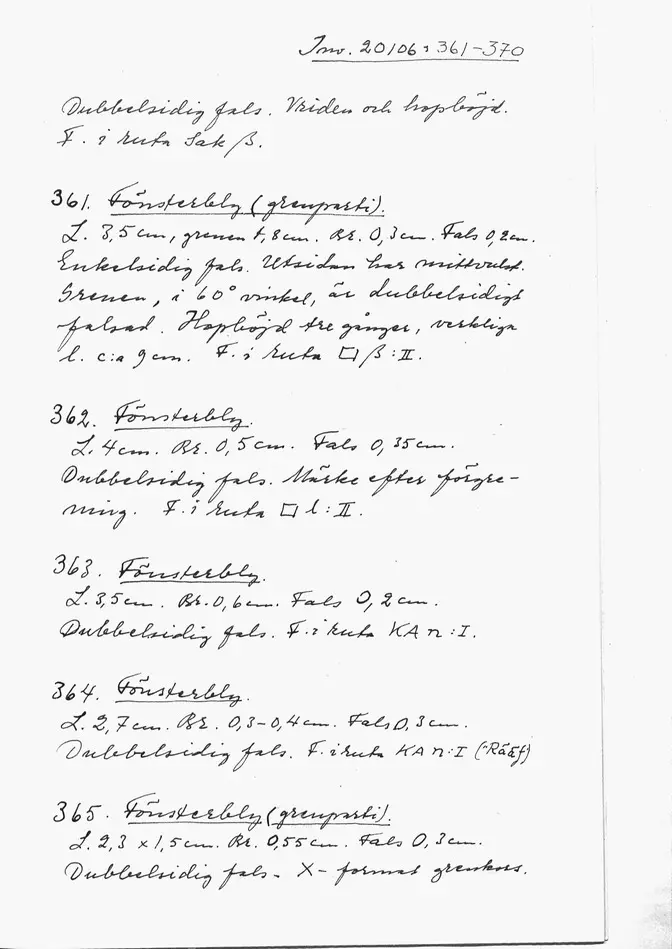 Inv. 20106:361-370
Dubbelsidig fals. Vriden och hopböjd.
F. i ruta Sak ß.
361. Fönsterbly (grenparti).
L. 3,5 cm, grenen 1,8 cm. Br. 0,3 cm. Fals 0,2 cm.
Enkelsidig fals. Utsidan har mittvulst.
Grenen, i 60° vinkel, är dubbelsidigt
falsad. Hopböjd tre gånger, verkliga
l. c:a 9 cm. F. i ruta □ ß:II.
362. Fönsterbly.
L. 4 cm. Br. 0,5 cm. Fals 0,35 cm.
Dubbelsidig fals. Märke efter förgre-
ning. F. i ruta □ l:II.
363. Fönsterbly.
L. 3,5 cm. Br. 0,6 cm. Fals 0,2 cm.
Dubbelsidig fals. F. i ruta KA n:I.
364. Fönsterbly.
L. 2,7 cm. Br. 0,3-0,4 cm. Fals 0,3 cm.
Dubbelsidig fals. F. i ruta KA n:I
365. Fönsterbly (grenparti).
L. 2,3 x 1,5 cm. Br. 0,55 cm. Fals 0,3 cm.
Dubbelsidig fals - X-format grenkors.